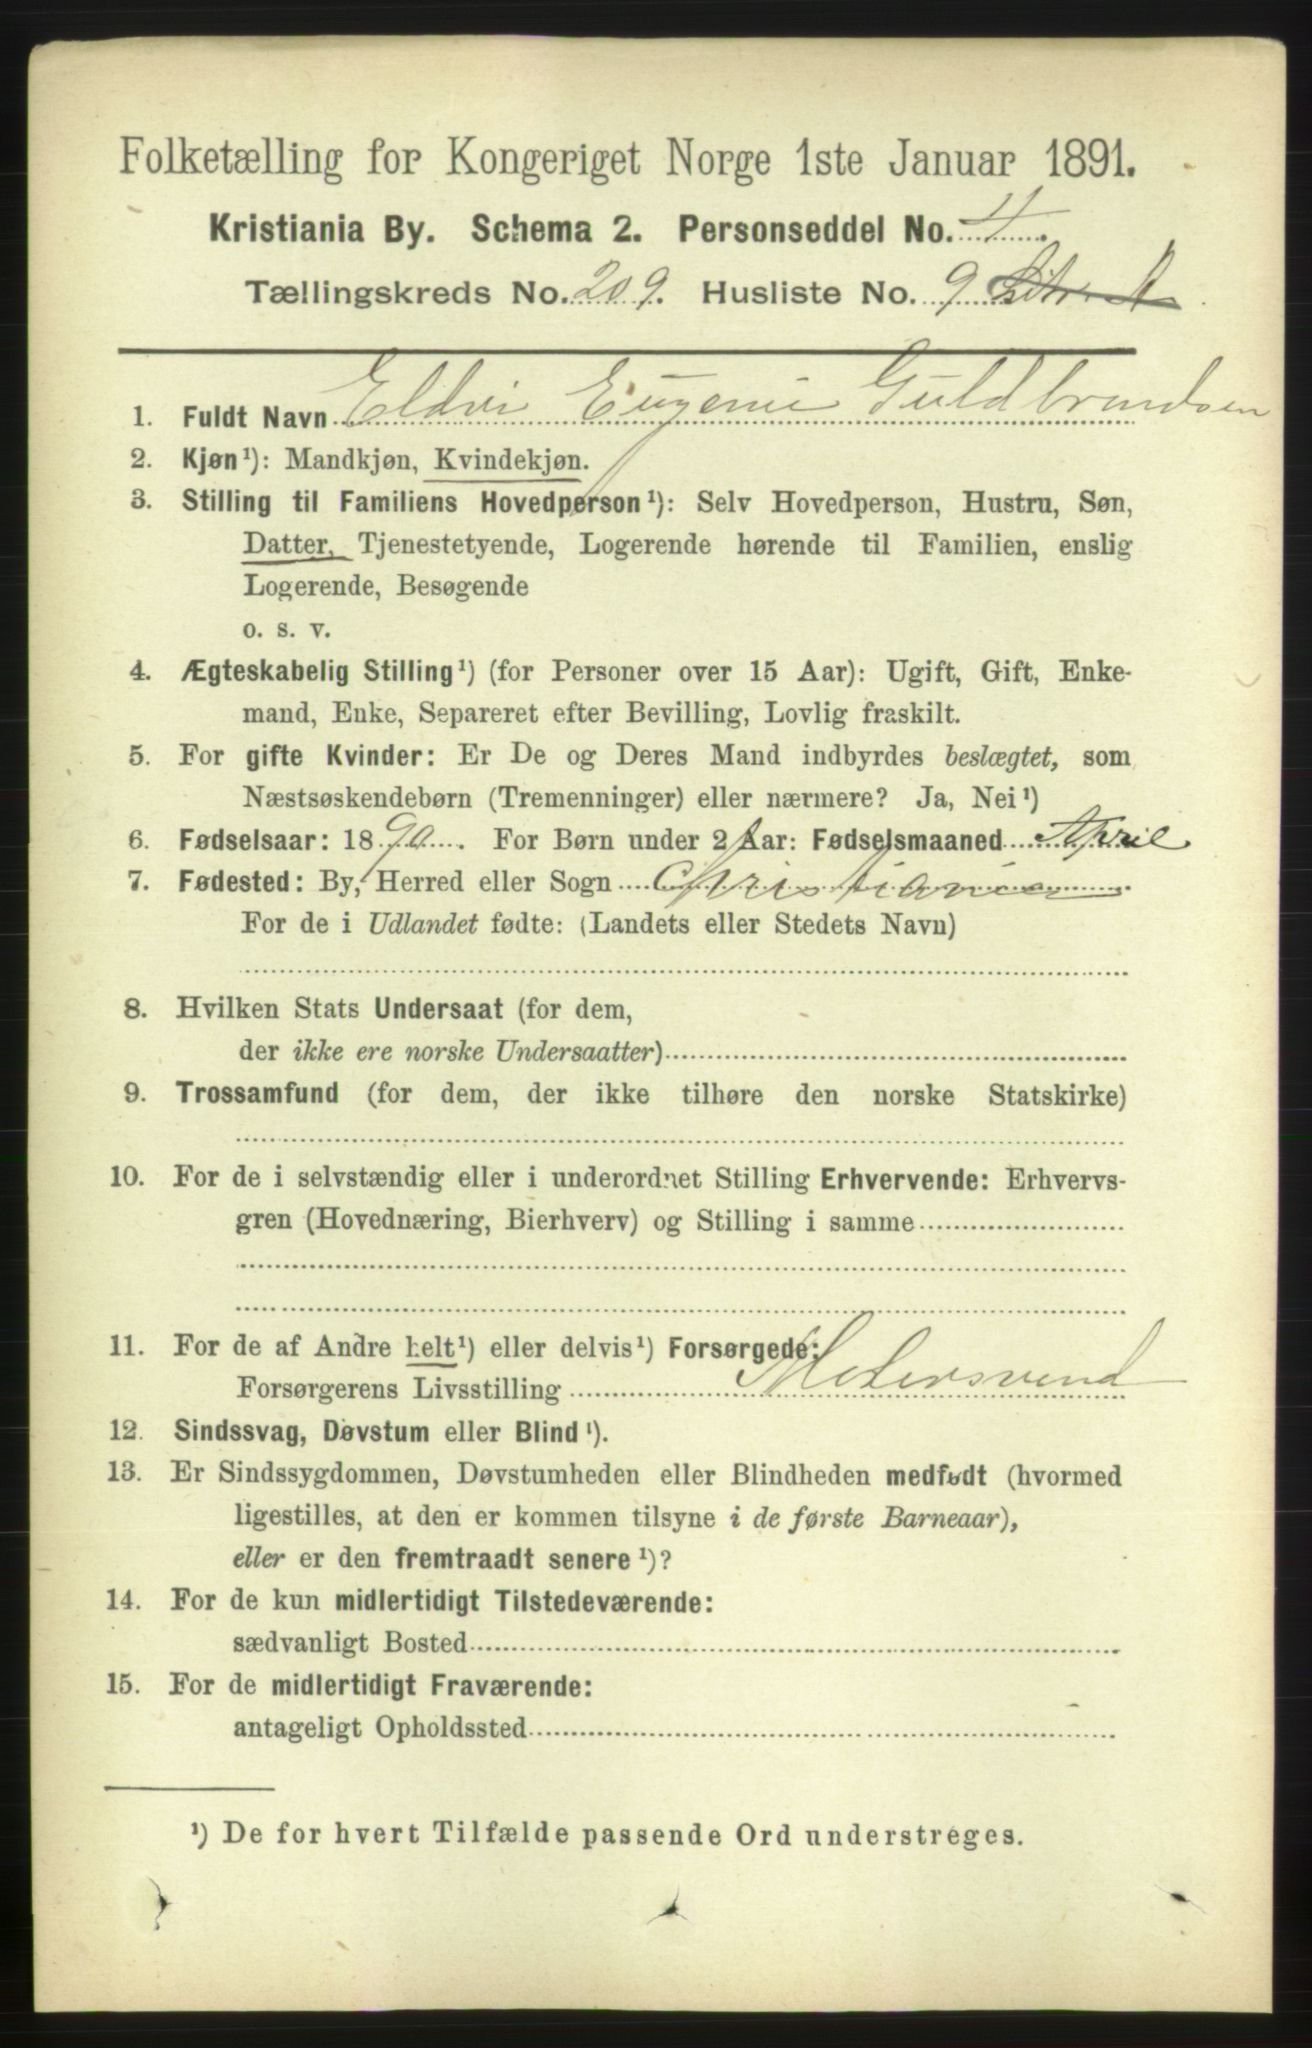 Folketælling for Kongeriget Norge 1ste Januar 1891.
Kristiania By. Schema 2. Personseddel No. 4.
Tællingskreds No. 209. Husliste No. 9 Litr. A
1. Fuldt Navn Eldvi Eugenie Guldbrandsen
2. Kjøn¹): Mandkjøn, Kvindekjøn.
3. Stilling til Familiens Hovedperson¹): Selv Hovedperson, Hustru, Søn,
Datter, Tjenestetyende, Logerende hørende til Familien, enslig
Logerende, Besøgende
o. s. v.
4. Ægteskabelig Stilling¹) (for Personer over 15 Aar): Ugift, Gift, Enke-
mand, Enke, Separeret efter Bevilling, Lovlig fraskilt.
5. For gifte Kvinder: Er De og Deres Mand indbyrdes beslægtet, som
Næstsøskendebørn (Tremenninger) eller nærmere? Ja, Nei¹)
6. Fødselsaar: 1890. For Børn under 2 Aar: Fødselsmaaned April
7. Fødested: By, Herred eller Sogn Christiania
For de i Udlandet fødte: (Landets eller Stedets Navn)
8. Hvilken Stats Undersaat (for dem,
der ikke ere norske Undersaatter)
9. Trossamfund (for dem, der ikke tilhøre den norske Statskirke)
10. For de i selvstændig eller i underordnet Stilling Erhvervende: Erhvervs-
gren (Hovednæring, Bierhverv) og Stilling i samme
11. For de af Andre helt¹) eller delvis¹) Forsørgede:
Forsørgerens Livsstilling Melersvend
12. Sindssvag, Døvstum eller Blind¹).
13. Er Sindssygdommen, Døvstumheden eller Blindheden medfødt (hvormed
ligestilles, at den er kommen tilsyne i de første Barneaar),
eller er den fremtraadt senere¹)?
14. For de kun midlertidigt Tilstedeværende:
sædvanligt Bosted
15. For de midlertidigt Fraværende:
antageligt Opholdssted
¹) De for hvert Tilfælde passende Ord understreges.